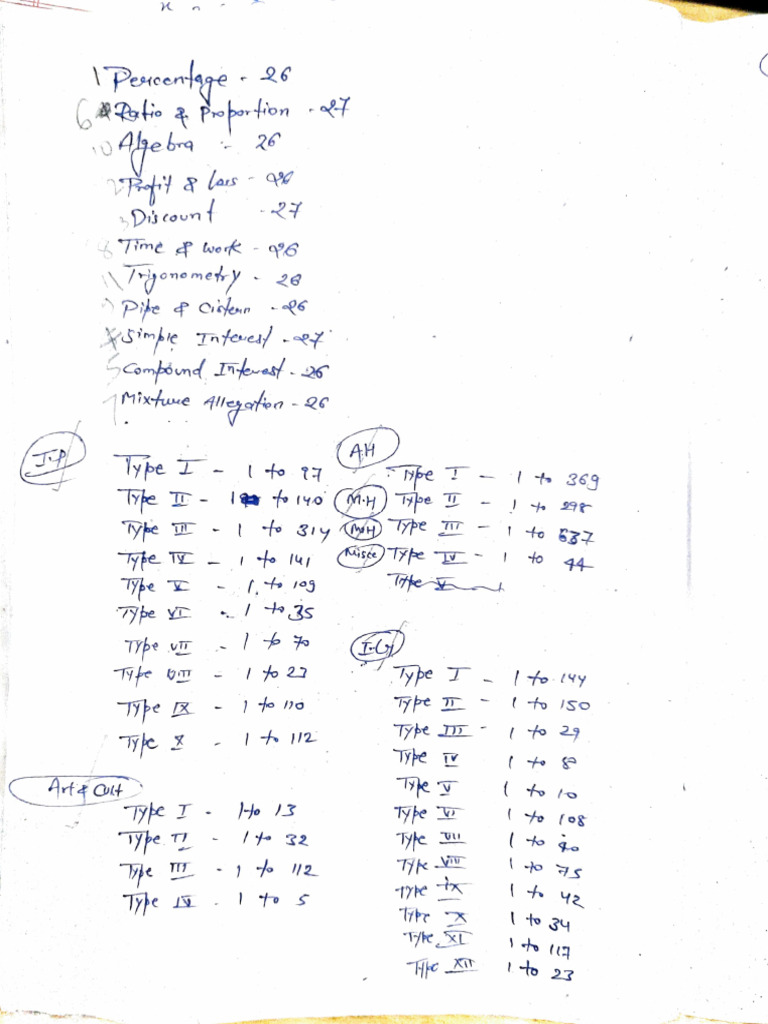 1 Percentage - 26
6 Ratio & Proportion - 27
10 Algebra - 26
2 Profit & Loss - 26
3 Discount - 27
8 Time & Work - 26
11 Trigonometry - 26
Pipe & Cistern - 26
Simple Interest - 27
5 Compound Interest - 26
7 Mixture Allegation - 26
I.P
Type I - 1 to 97
Type II - 1 to 140
Type III - 1 to 314
Type IV - 1 to 141
Type V - 1 to 109
Type VI - 1 to 35
Type VII - 1 to 70
Type VIII - 1 to 23
Type IX - 1 to 110
Type X - 1 to 112
Art & Cult
Type I - 1 to 13
Type II - 1 to 32
Type III - 1 to 112
Type IV - 1 to 5
A.H Type I - 1 to 369
M.H Type II - 1 to 298
M.H Type III - 1 to 637
Misce Type IV - 1 to 44
Type V
I.G
Type I - 1 to 144
Type II - 1 to 150
Type III - 1 to 29
Type IV 1 to 8
Type V 1 to 10
Type VI 1 to 108
Type VII 1 to 40
Type VIII 1 to 75
Type IX 1 to 42
Type X 1 to 34
Type XI 1 to 117
Type XII 1 to 23